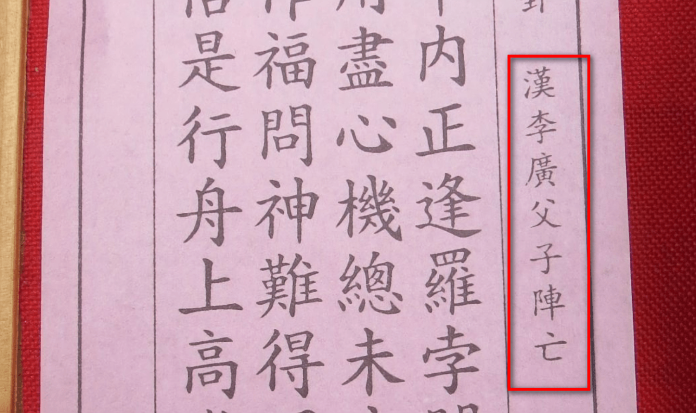 漢李廣父子陣亡
內正逢羅孛
盡心機總未
作福問神難得
是行舟上高